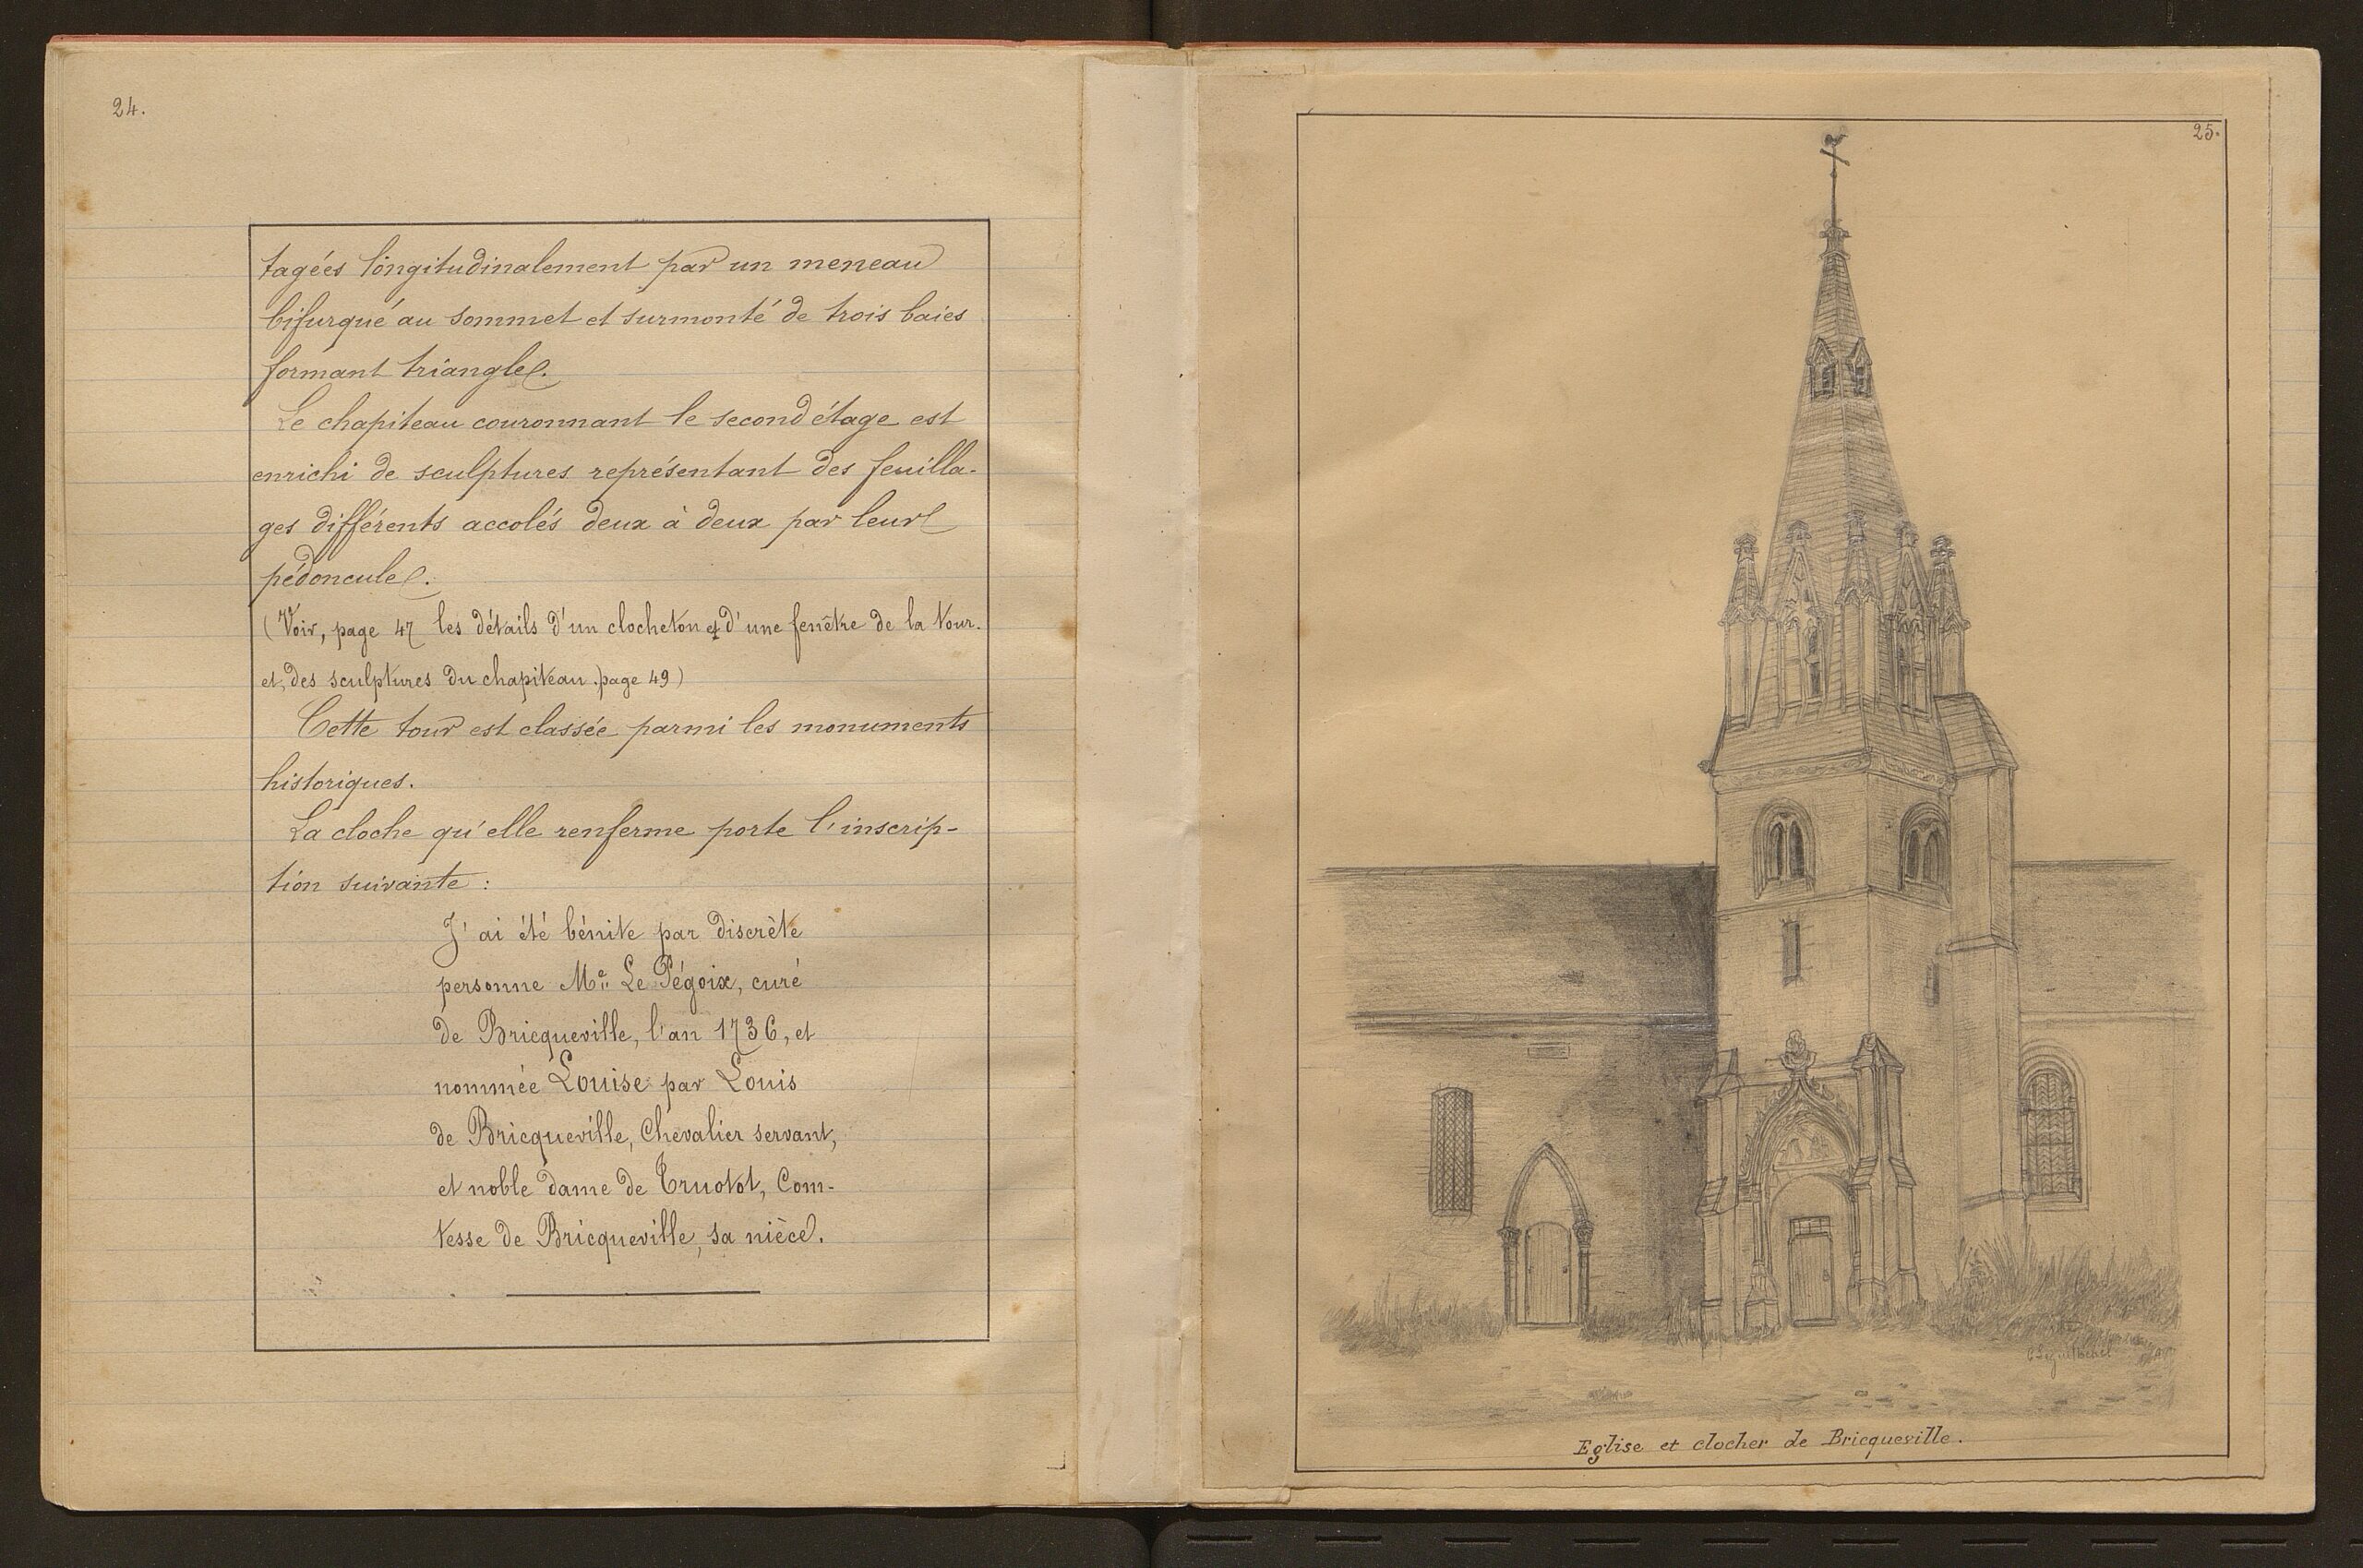 24.
tagées longitudinalement par un meneau
bifurqué au sommet et surmonté de trois baies
formant triangle.
Le chapiteau couronnant le second étage est
enrichi de sculptures représentant des feuilla-
ges différents accolés deux à deux par leur
pédoncule.
(Voir, page 47 les détails d'un clocheton et d'une fenêtre de la tour.
et, des sculptures du chapiteau. page 49)
Cette tour est classée parmi les monuments
historiques.
La cloche qu'elle renferme porte l'inscrip-
tion suivante :
J'ai été bénite par discrète
personne Me Le Pégoix, curé
de Bricqueville, l'an 1736, et
nommée Louise par Louis
de Bricqueville, Chevalier servant,
et noble dame de Cruotot, Com-
tesse de Bricqueville, sa nièce.
25.
Eglise et clocher de Bricqueville.